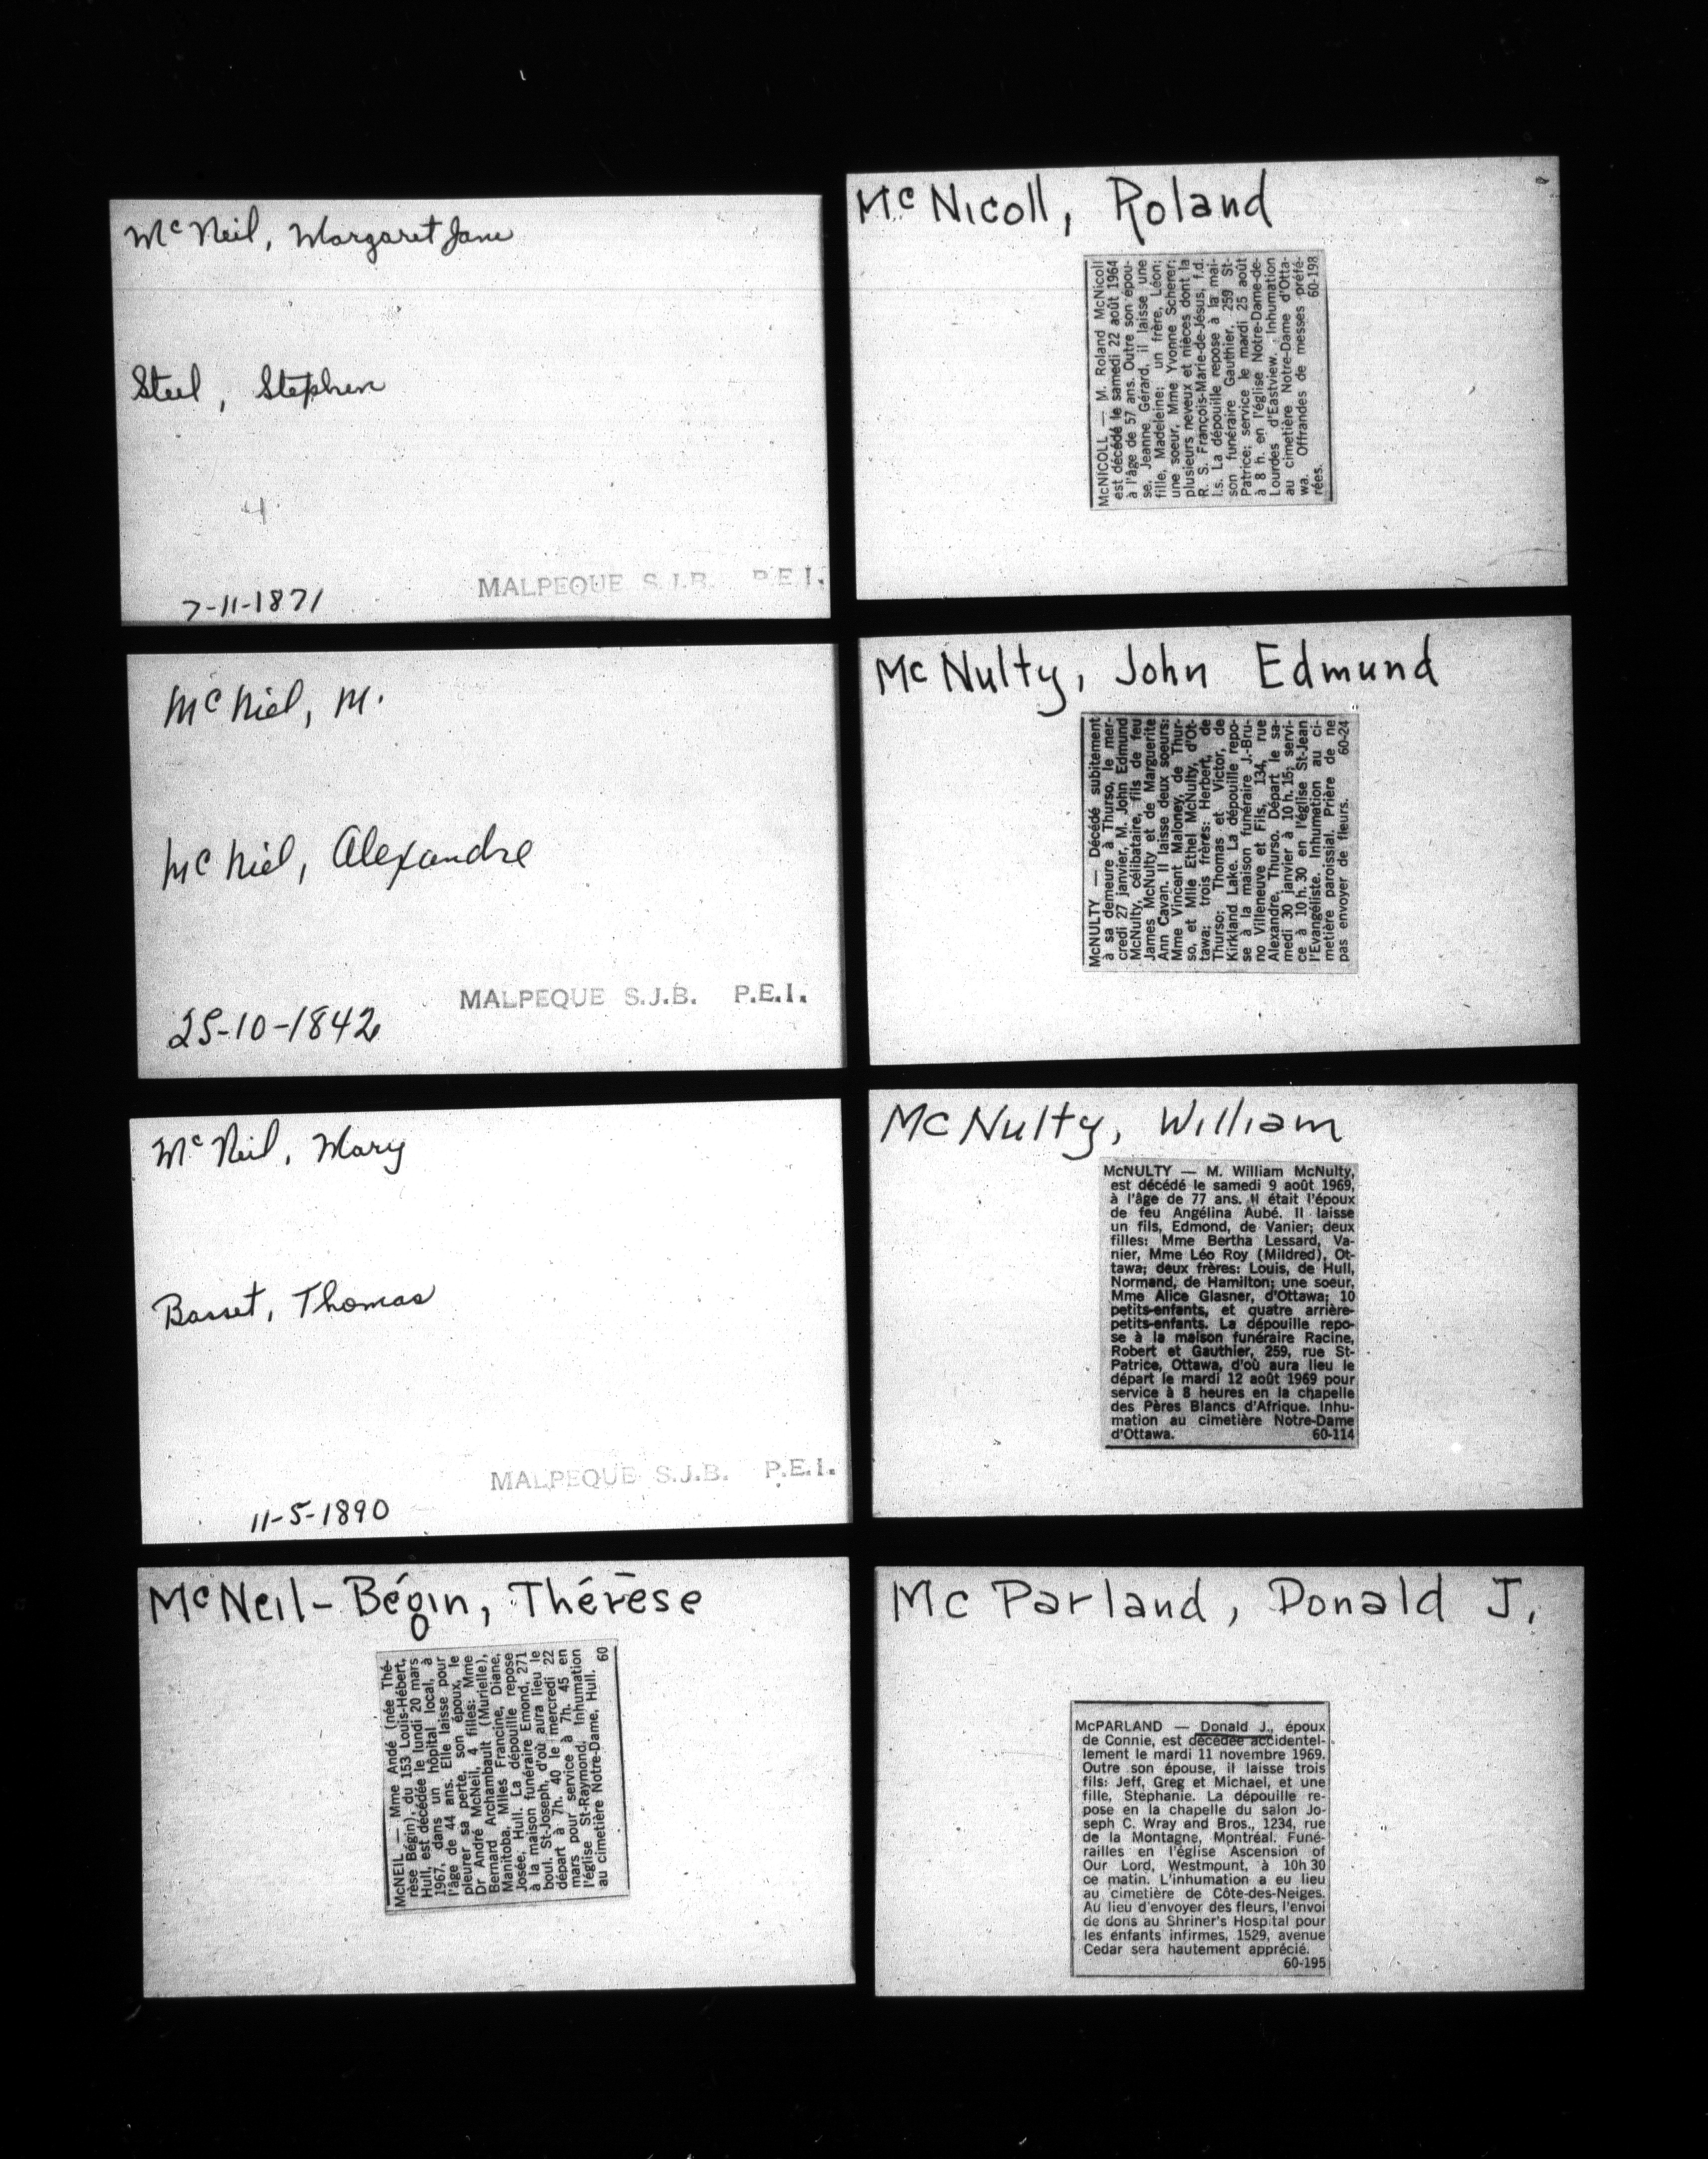 McNeil, Margaret Jane
Steel, Stephen
4
7-11-1871
MALPEQUE S.J.B. P.E.I.
McNiel, M.
McNiel, Alexandre
MALPEQUE S.J.B. P.E.I.
25-10-1842
McNeil, Mary
Basset, Thomas
MALPEQUE S.J.B. P.E.I.
11-5-1890
McNeil-Bégin, Thérèse
McNEIL — Mme Andé (née Thé-
rèse Bégin), du 153 Louis-Hébert,
Hull, est décédée le lundi 20 mars
1967, dans un hôpital local, à
l'âge de 44 ans. Elle laisse pour
pleurer sa perte, son époux, le
Dr André McNeil, 4 filles: Mme
Bernard Archambault (Murielle),
Manitoba, Milles Francine, Diane,
Josée, Hull. La dépouille repose
à la maison funéraire Emond, 271
boul. St-Joseph, d'où aura lieu le
départ à 7h. 40 le mercredi 22
mars pour service à 7h. 45 en
l'église St-Raymond. Inhumation
au cimetière Notre-Dame, Hull.
60
McNicoll, Roland
McNICOLL — M. Roland McNicoll
est décédé le samedi 22 août 1964
à l'âge de 57 ans. Outre son épou-
se, Jeanne Gérard, il laisse une
fille, Madeleine; un frère, Léon;
une soeur, Mme Yvonne Scherer;
plusieurs neveux et nièces dont la
R. S. François-Marie-de-Jésus, f.d.
l.s. La dépouille repose à la mai-
son funéraire Gauthier, 259 St-
Patrice; service le mardi 25 août
à 8 h. en l'église Notre-Dame-de-
Lourdes d'Eastview. Inhumation
au cimetière Notre-Dame d'Otta-
wa. Offrandes de messes préfé-
rées. 60-198
McNulty, John Edmund
McNULTY — Décédé subitement
à sa demeure à Thurso, le mer-
credi 27 janvier, M. John Edmund
McNulty, célibataire, fils de feu
James McNulty et de Marguerite
Ann Cavan. Il laisse deux soeurs:
Mme Vincent Maloney, de Thur-
so, et Mlle Ethel McNulty, d'Ot-
tawa; trois frères: Herbert, de
Thurso; Thomas et Victor, de
Kirkland Lake. La dépouille repo-
se à la maison funéraire J.-Bru-
no Villeneuve et Fils, 134, rue
Alexandre, Thurso. Départ le sa-
medi 30 janvier à 10 h. 15; servi-
ce à 10 h. 30 en l'église St-Jean
l'Evangéliste. Inhumation au ci-
metière paroissial. Prière de ne
pas envoyer de fleurs. 60-24
McNulty, William
McNULTY — M. William McNulty,
est décédé le samedi 9 août 1969,
à l'âge de 77 ans. Il était l'époux
de feu Angélina Aubé. Il laisse
un fils, Edmond, de Vanier; deux
filles: Mme Bertha Lessard, Va-
nier, Mme Léo Roy (Mildred), Ot-
tawa; deux frères: Louis, de Hull,
Normand, de Hamilton; une soeur,
Mme Alice Glasner, d'Ottawa; 10
petits-enfants, et quatre arrière-
petits-enfants. La dépouille repo-
se à la maison funéraire Racine,
Robert et Gauthier, 259, rue St-
Patrice, Ottawa, d'où aura lieu le
départ le mardi 12 août 1969 pour
service à 8 heures en la chapelle
des Pères Blancs d'Afrique. Inhu-
mation au cimetière Notre-Dame
d'Ottawa. 60-114
McParland, Donald J.
McPARLAND — Donald J., époux
de Connie, est décédée accidentel-
lement le mardi 11 novembre 1969.
Outre son épouse, il laisse trois
fils: Jeff, Greg et Michael, et une
fille, Stéphanie. La dépouille re-
pose en la chapelle du salon Jo-
seph C. Wray and Bros., 1234, rue
de la Montagne, Montréal. Funé-
railles en l'église Ascension of
Our Lord, Westmount, à 10h 30
ce matin. L'inhumation a eu lieu
au cimetière de Côte-des-Neiges.
Au lieu d'envoyer des fleurs, l'envoi
de dons au Shriner's Hospital pour
les enfants infirmes, 1529, avenue
Cedar sera hautement apprécié.
60-195